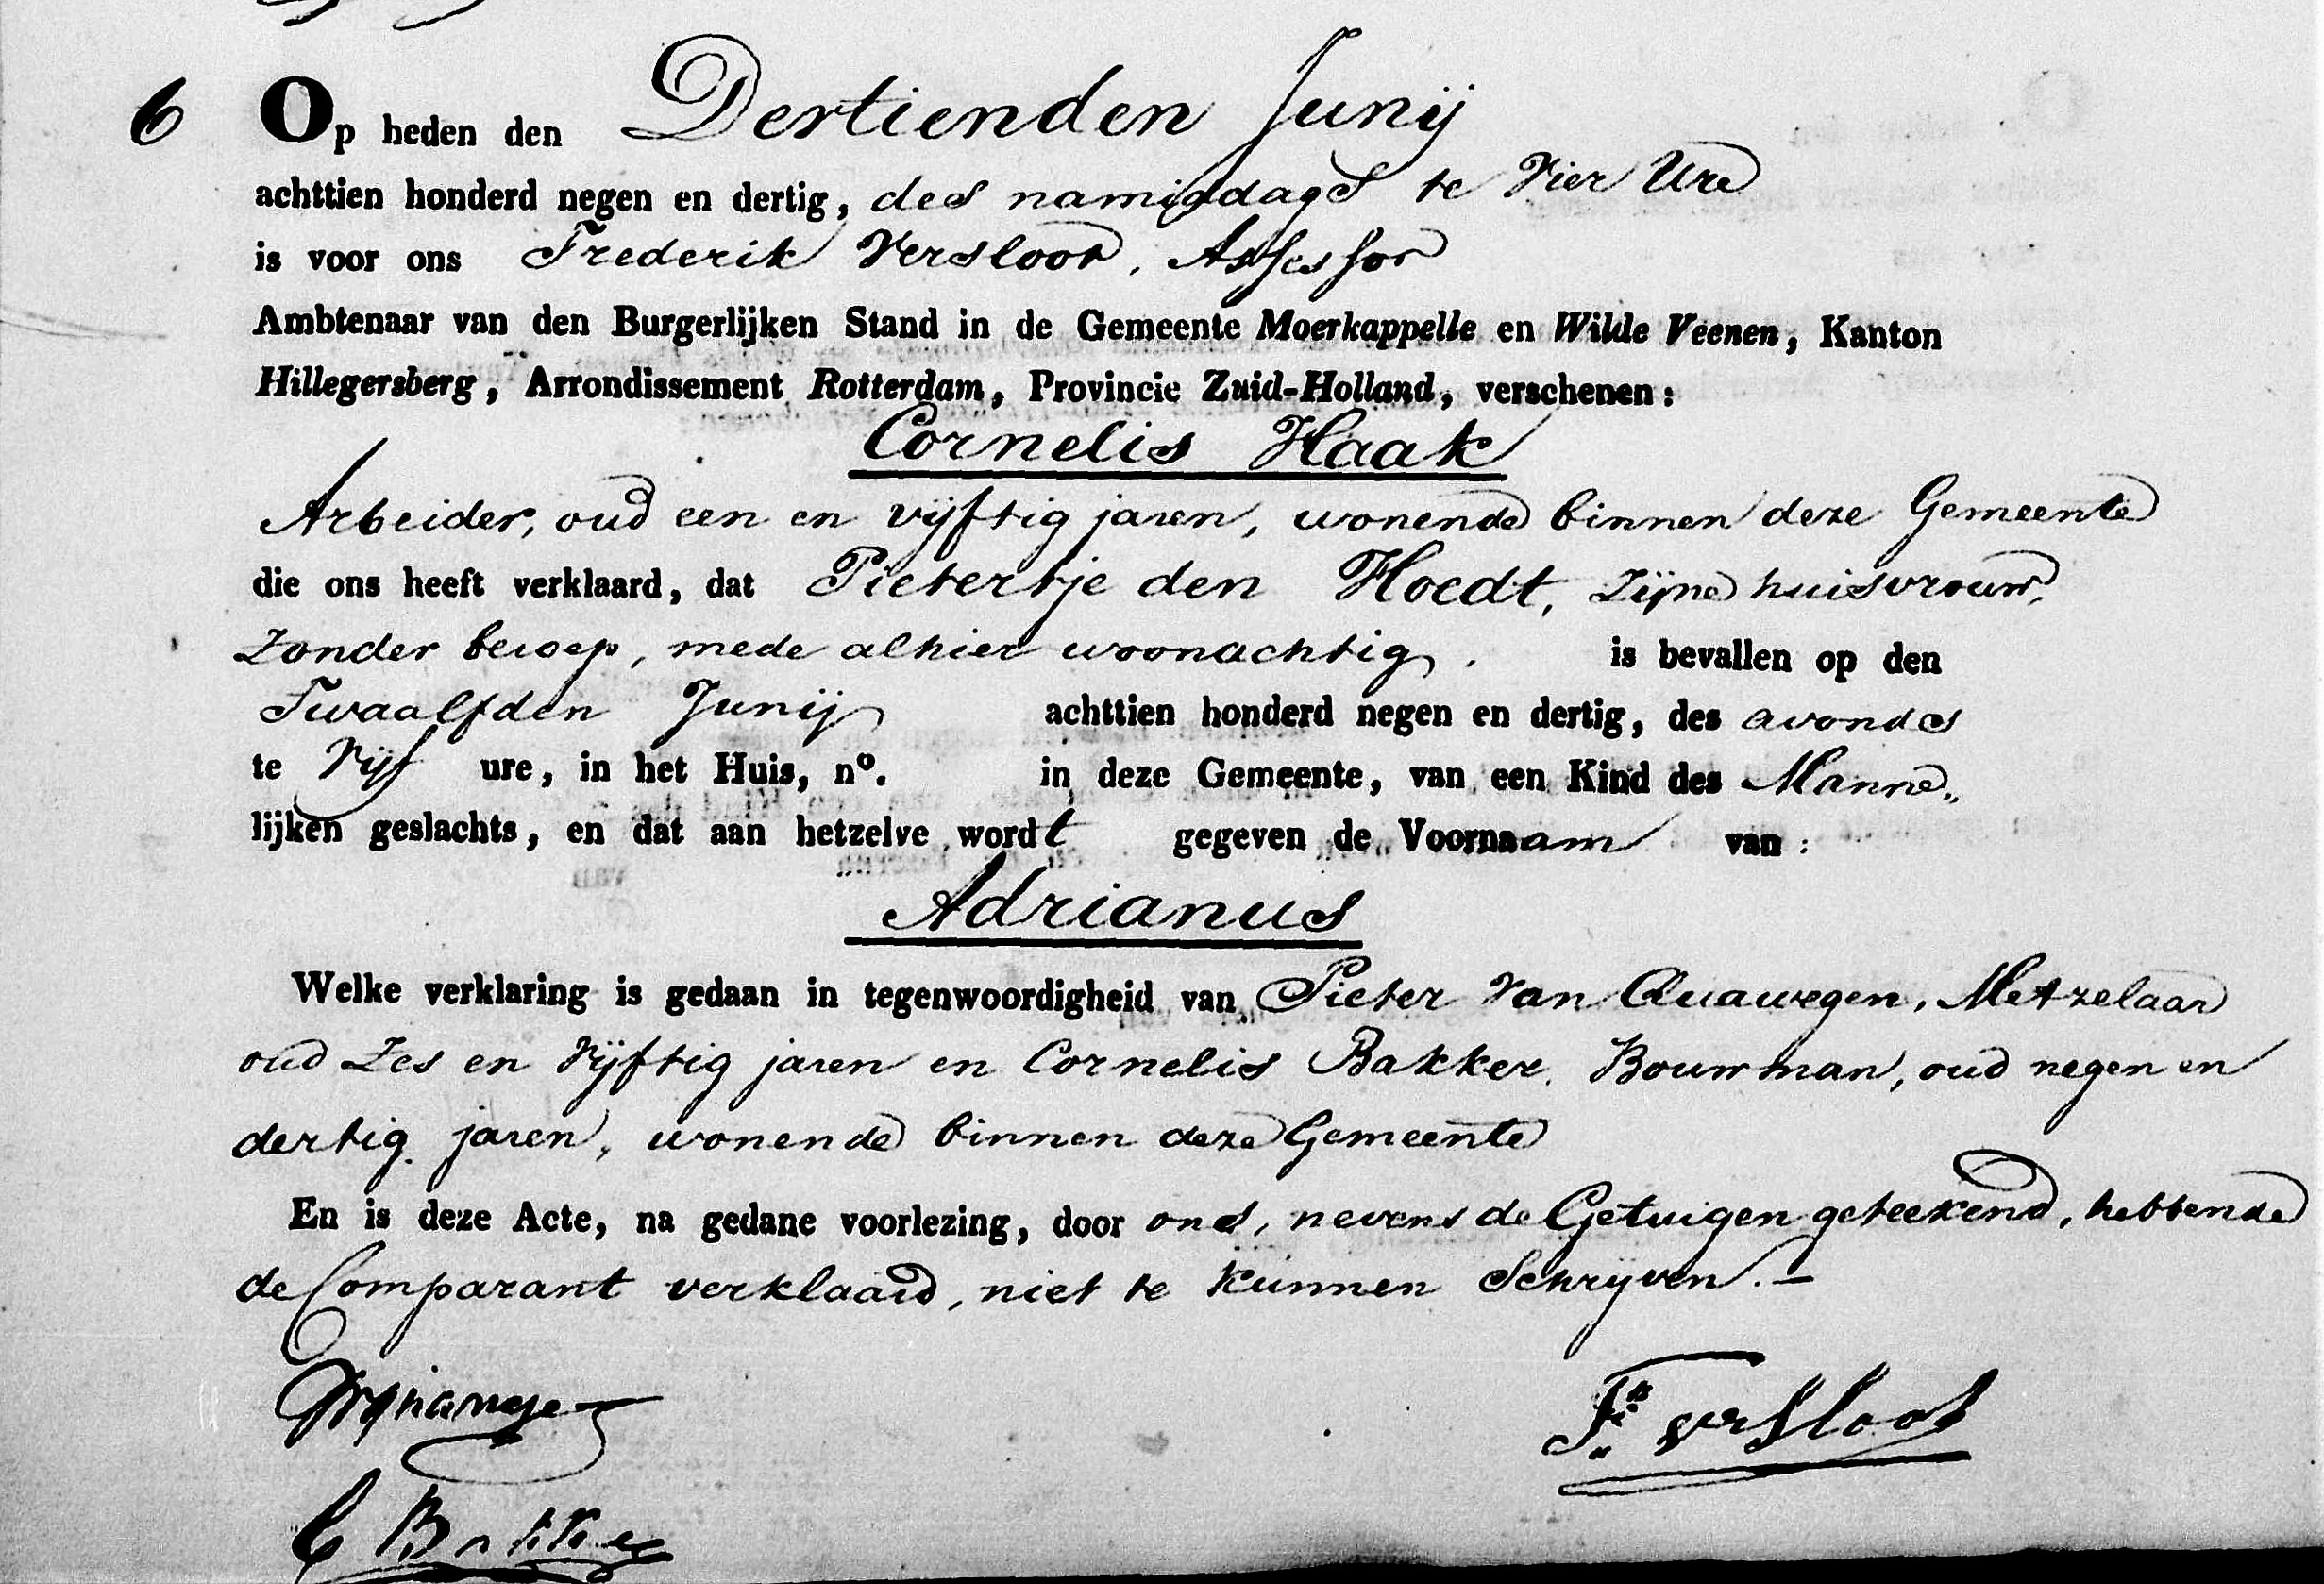 6 Op heden den Dertienden Junij
achttien honderd negen en dertig, des namiddags te Vier Ure
is voor ons Frederik Versloot, Assessor
Ambtenaar van den Burgerlijken Stand in de Gemeente Moerkappelle en Wilde Veenen, Kanton
Hillegersberg, Arrondissement Rotterdam, Provincie Zuid-Holland, verschenen:
Cornelis Haak
Arbeider, oud een en vijftig jaren, wonende binnen deze Gemeente
die ons heeft verklaard, dat Pietertje den Hoedt, Zijne huisvrouw,
Zonder beroep, mede alhier woonachtig, is bevallen op den
Twaalfden Junij achttien honderd negen en dertig, des avondes
te Vijf ure, in het Huis, no. in deze Gemeente, van een Kind des Manne„
lijken geslachts, en dat aan hetzelve wordt gegeven de Voornaam van:
Adrianus
Welke verklaring is gedaan in tegenwoordigheid van Pieter Van Quawegen, Metzelaar
oud Zes en Vijftig jaren en Cornelis Bakker, Bouwman, oud negen en
dertig jaren, wonende binnen deze Gemeente
En is deze Acte, na gedane voorlezing, door ons, nevens de Getuigen geteekend, hebbende
de Comparant verklaard, niet te kunnen Schrijven.–
Fk. VerSloot
C Bakker